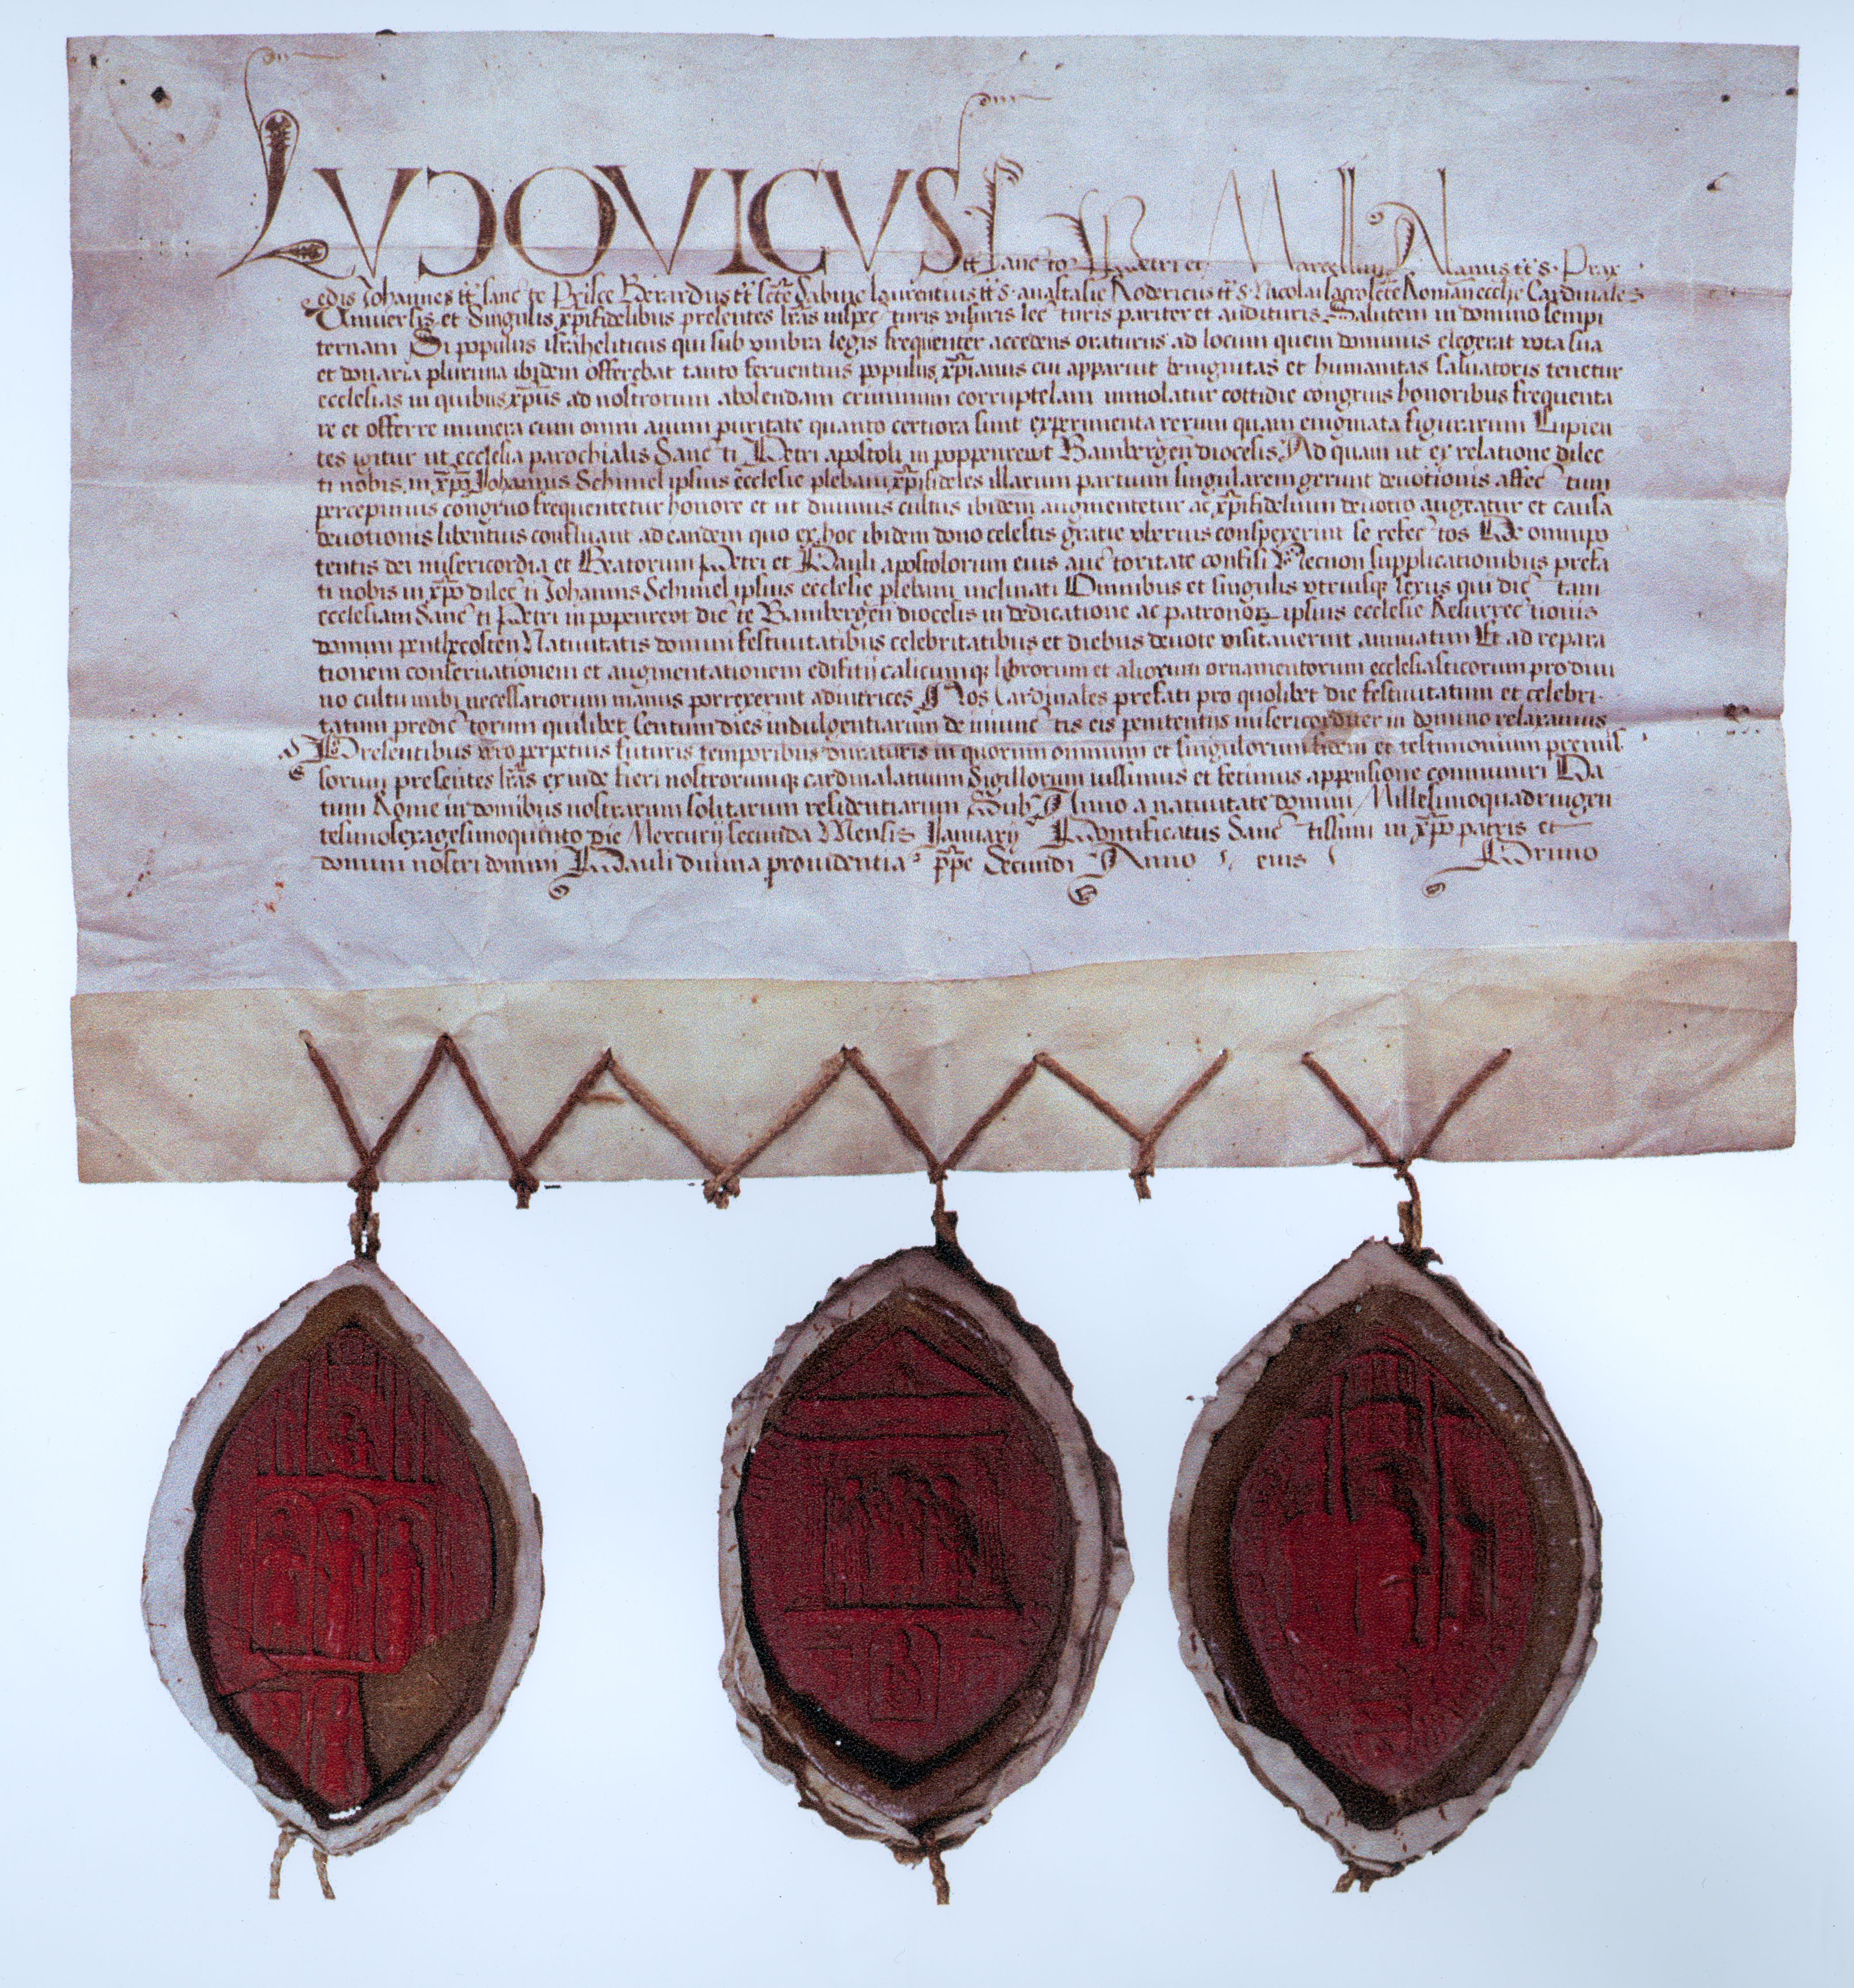 LUDOVICUS tt Sanctor Petri et Marcellini Alanus tt s. Prax
edis Johannes tt sancte Prisce Berardus tt scte Sabine Laurentius tt s. anastasie Rodericus tt s. Nicolai sacroscte Roman ecclie Cardinales
Universis et Singulis xpifidelibus presentes lras inspecturis visuris lecturis pariter et audituris Salutem in domino sempi
ternam Si populus israheliticus qui sub umbra legis frequenter accedens oraturus ad locum quem dominus elegerat vota sua
et donaria plurima ibidem offerebat tanto ferventius populus xpianus cui apparuit benignitas et humanitas salvatoris tenetur
ecclesias in quibus xpus ad nostrorum abolendam criminum corruptelam immolatur cottidie congruis honoribus frequenta
re et offerre munera cum omni animi puritate quanto certiora sunt experimenta rerum quam enigmata figurarum Cupien
tes igitur ut ecclesia parochialis Sancti Petri apostoli in poppenrewt Bambergen diocesis Ad quam ut ex relatione dilec
ti nobis in xpo Johannis Schmel ipsius ecclesie plebani xpifideles illarum partium singularem gerunt devotionis affectum
percepimus congruo frequentetur honore et ut divinus cultus ibidem augmentetur ac xpifidelium devotio augeatur et causa
devotionis libentius confluant ad eandem quo ex hoc ibidem dono celestis gratie uberius conspexerint se refectos De omnipo
tentis dei misericordia et Beatorum Petri et Pauli apostolorum eius auctoritate confisi Necnon supplicationibus prefa
ti nobis in xpo dilecti Johannis Schmel ipsius ecclesie plebani inclinati Omnibus et singulis utriusque sexus qui dictam
ecclesiam Sancti Petri in poppenrewt dicte Bambergen diocesis in dedicatione ac patronorum ipsius ecclesie Resurrectionis
domini penthecosten Nativitatis domini festivitatibus celebritatibus et diebus devote visitaverint annuatim Et ad repara
tionem conservationem et augmentationem edifitii calicumque librorum et aliorum ornamentorum ecclesiasticorum pro divi
no cultu inibi necessariorum manus porrexerint adiutrices Nos Cardinales prefati pro quolibet die festivitatum et celebri
tatum predictorum quilibet Centum dies indulgentiarum de iniunctis eis penitentiis misericorditer in domino relaxamus
Presentibus vero perpetuis futuris temporibus duraturis in quorum omnium et singulorum fidem et testimonium premis
sorum presentes lras exinde fieri nostrorumque cardinalatuum Sigillorum iussimus et fecimus appensione communiri Da
tum Rome in domibus nostrarum solitarum residentiarum Sub Anno a nativitate domini Millesimoquadringen
tesimosexagesimoquinto Die Mercurij secunda Mensis Ianuarij Pontificatus Sanctissimi in xpo patris et
domini nostri domini Pauli divina providentia ppe Secundi Anno eius Primo